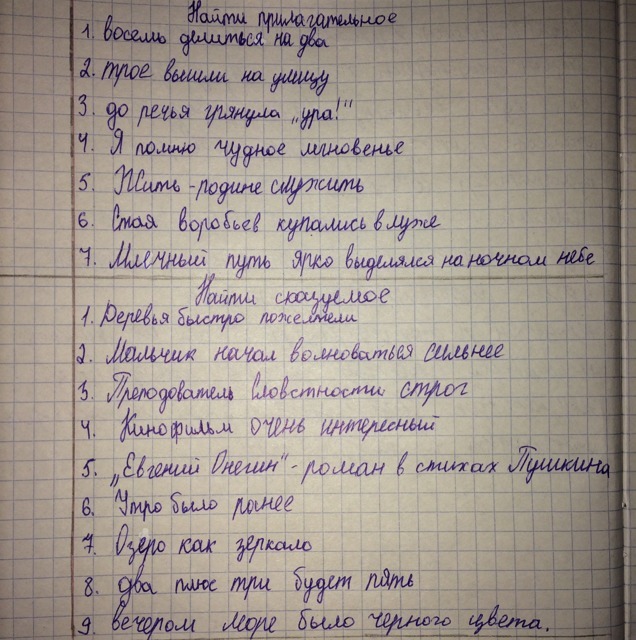 Найти прилагательное
1. восемь делиться на два
2. трое вышли на улицу
3. до речья грянула „ура!"
4. Я помню чудное мгновенье
5. Жить - родине служить
6. Стая воробьев купались в луже
7. Млечный путь ярко выделялся на ночном небе
Найти сказуемое
1. Деревья быстро пожелтели
2. Мальчик начал волноваться сильнее
3. Преподователь словстности строг
4. Кинофильм очень интересный
5. „Евгений Онегин" - роман в стихах Пушкина
6. Утро было ранее
7. Озеро как зеркало
8. два плюс три будет пять
9. вечером море было черного цвета.